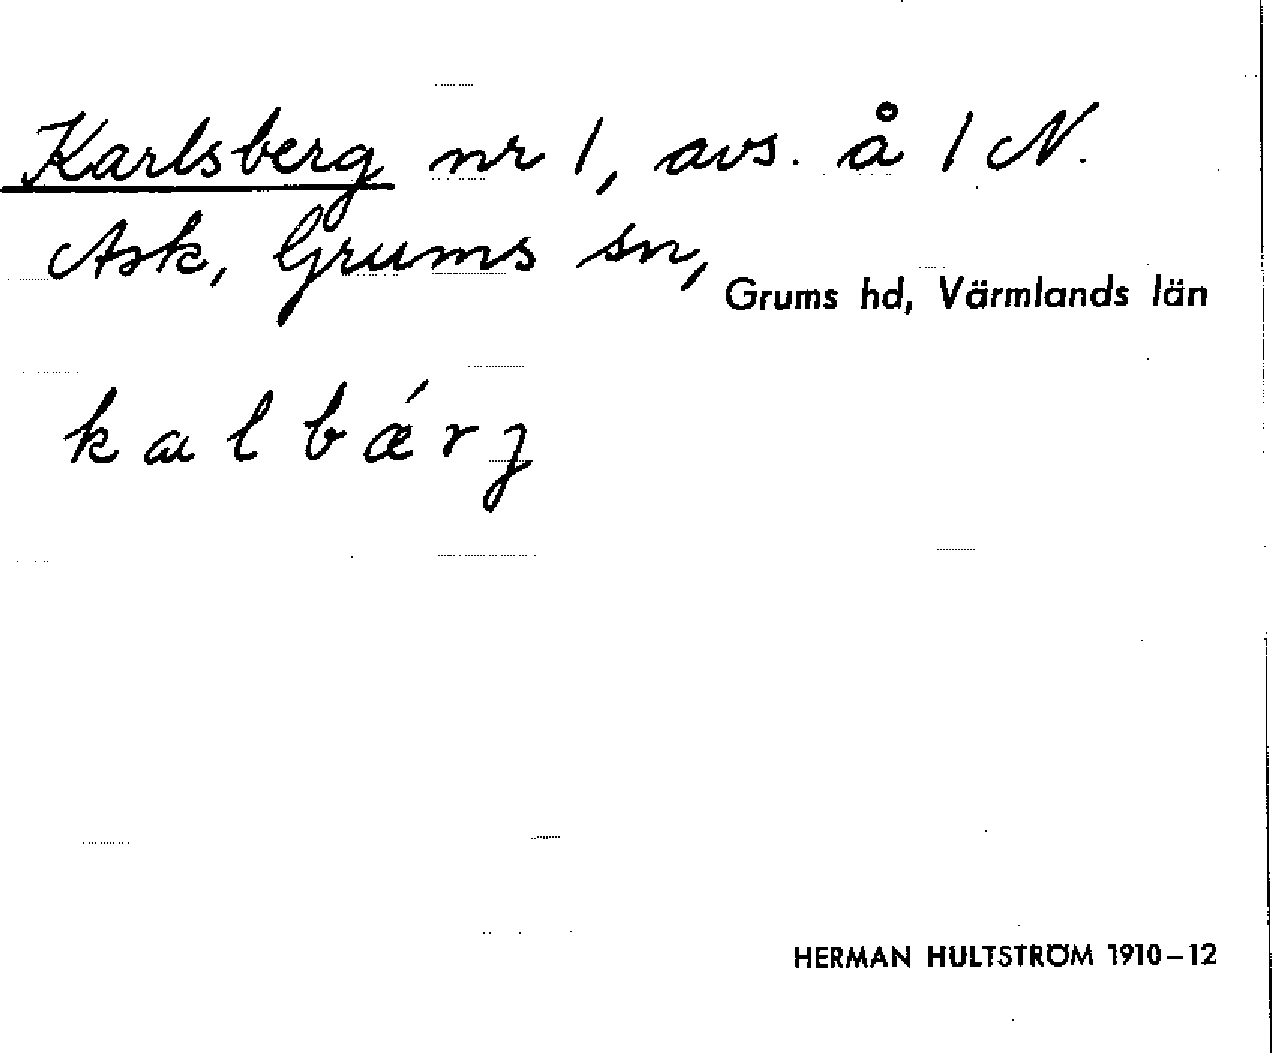 Karlsberg nr 1, avs. å 1 N.
Ask, Grums sn, Grums hd, Värmlands län
kalbǽrȷ
HERMAN HULTSTRÖM 1910–12